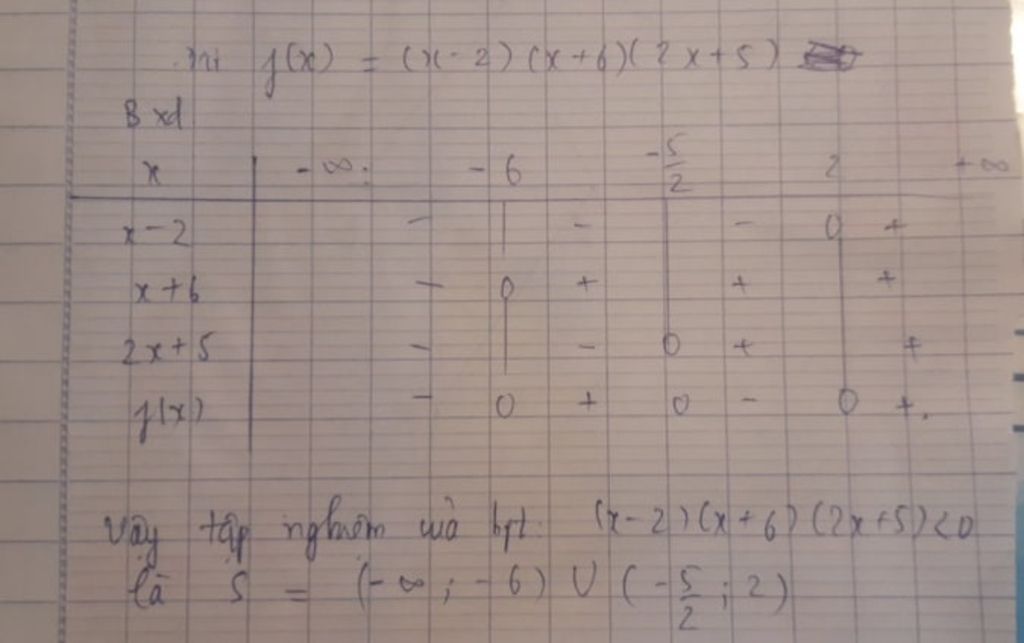 f(x) = (x-2)(x+6)(2x+5)
Bxd
x -∞ -6 -5/2 2 +∞
x-2 - | - | - 0 +
x+6 - 0 + | + | +
2x+5 - | - 0 + | +
f(x) - 0 + 0 - 0 +.
Vậy tập nghiệm của bpt (x-2)(x+6)(2x+5)<0
là S = (-∞; -6) ∪ (-5/2; 2)